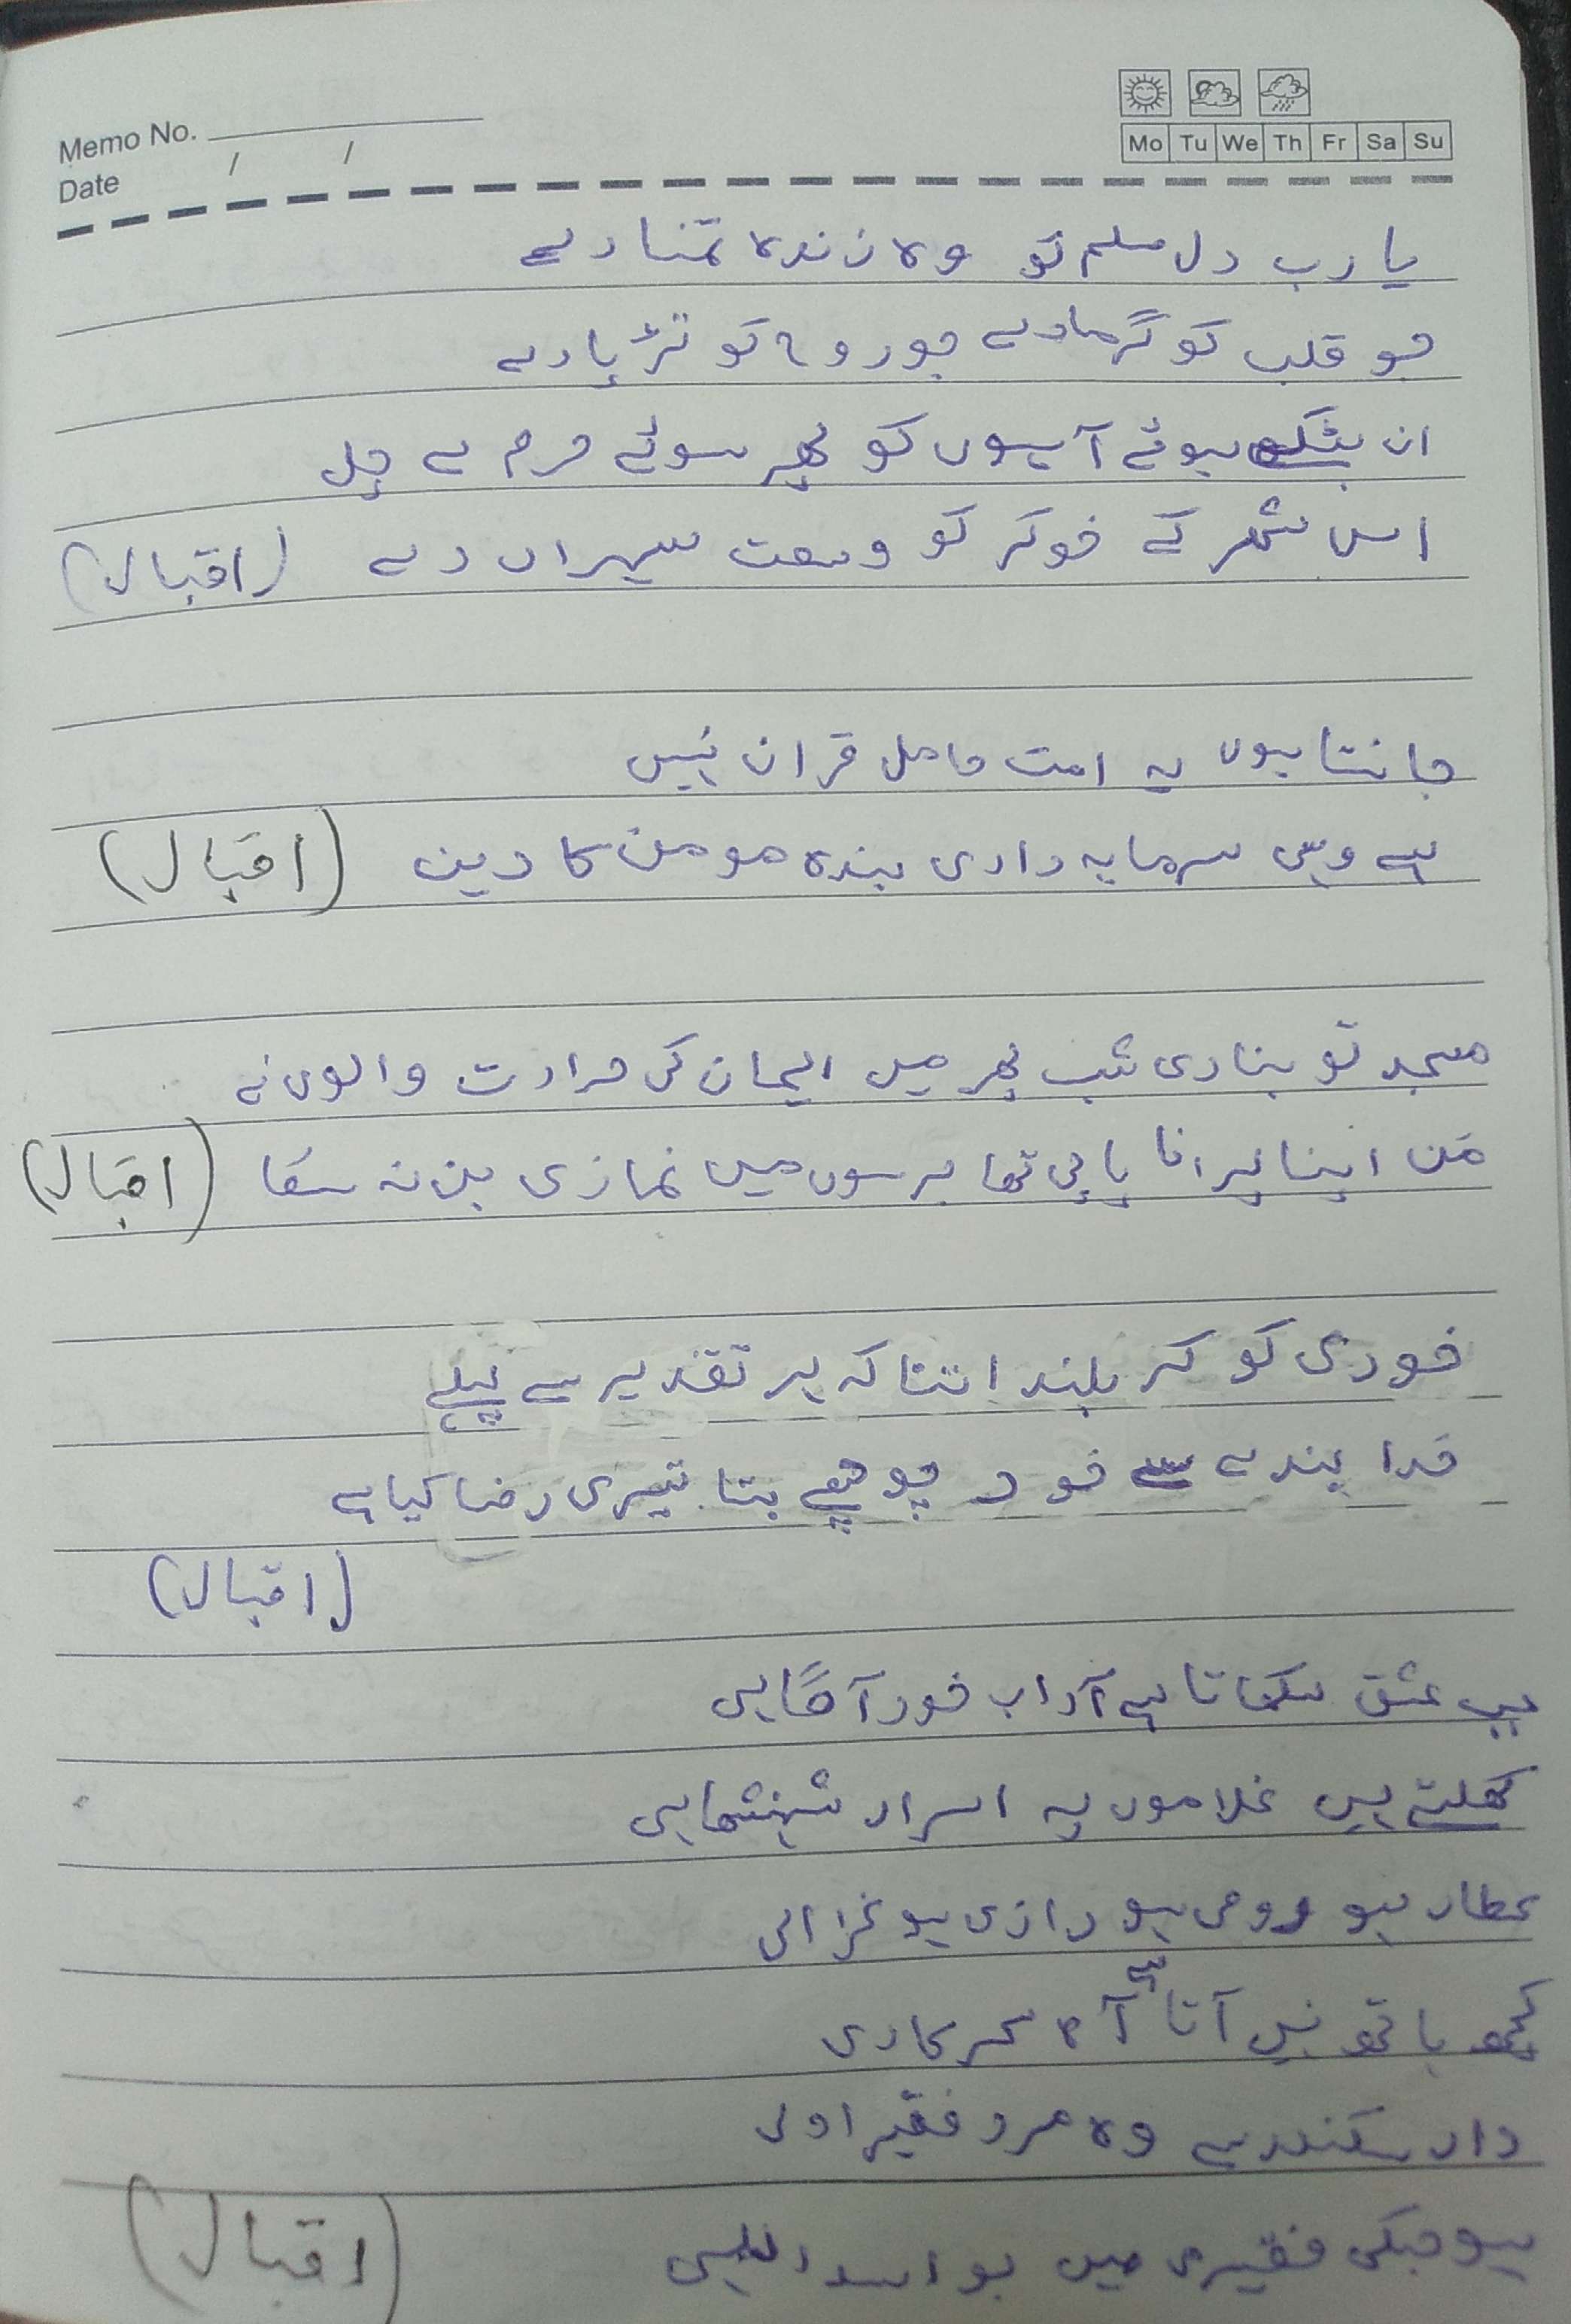 Memo No.
Date / /
Mo Tu We Th Fr Sa Su
یا رب دل مسلم تو وہ زندہ تمنا دے
جو قلب کو گرما دے جو روح کو تڑپا دے
ان بٹکھے ہوئے آہوں کو پھر سوئے حرم لے چل
اس شھر کے خوگر کو وسعت سہراں دے (اقبال)
جانتا ہوں یہ امت حامل قران نہیں
ہے وہی سرمایہ داری بندہ مومن کا دین (اقبال)
مسجد تو بنا دی شب بھر میں ایمان کی حرارت والوں نے
من اپنا پرانا پاپی تھا برسوں میں نمازی بن نہ سکا (اقبال)
خودی کو کر بلند اتنا کہ ہر تقدیر سے پہلے
خدا بندے سے خود پوچھے بتا تیری رضا کیا ہے
(اقبال)
جب عشق سکھاتا ہے آداب خود آگاہی
کھلتے ہیں غلاموں پہ اسرار شہنشھاہی
عطار ہو رومی ہو رازی ہو غزالی
کچھ ہاتھ نہیں آتا بے آہ سحر گاری
دار سکندر سے وہ مرد فقیر اولی
ہو جسکی فقیری میں بو اسد اللہی (اقبال)